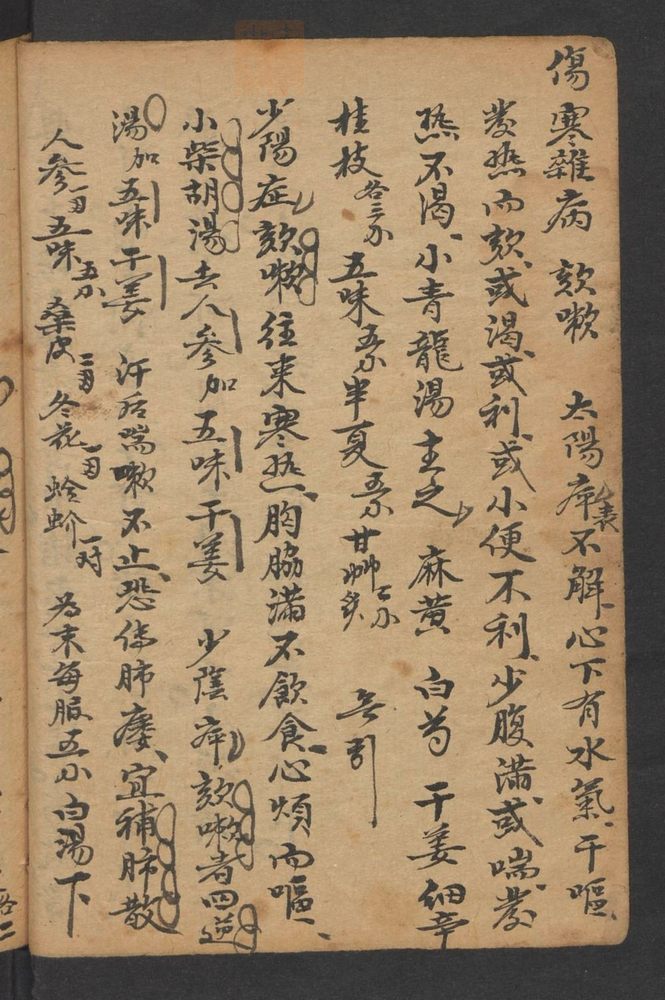 傷寒雜病 欬嗽 太陽症表不解、心下有水氣、干嘔、
發热而欬、或渴、或利、或小便不利、少腹满、或喘、發
热不渴、小青龍湯主之、 麻黄 白芍 干姜 細辛
桂枝各三分 五味五分 半夏五分 甘艸炙二分 無引
少陽症、欬嗽、往来寒热、胸脇满不飲食、心煩而嘔、
小柴胡湯去人參加五味干姜 少蔭症、欬嗽者四逆
湯加五味干姜 汗后喘嗽不止、恐傳肺痿、宜補肺散
人參一両 五味五分 桑皮二両 冬花一両 蛤蚧一对 為末每服五分白湯下